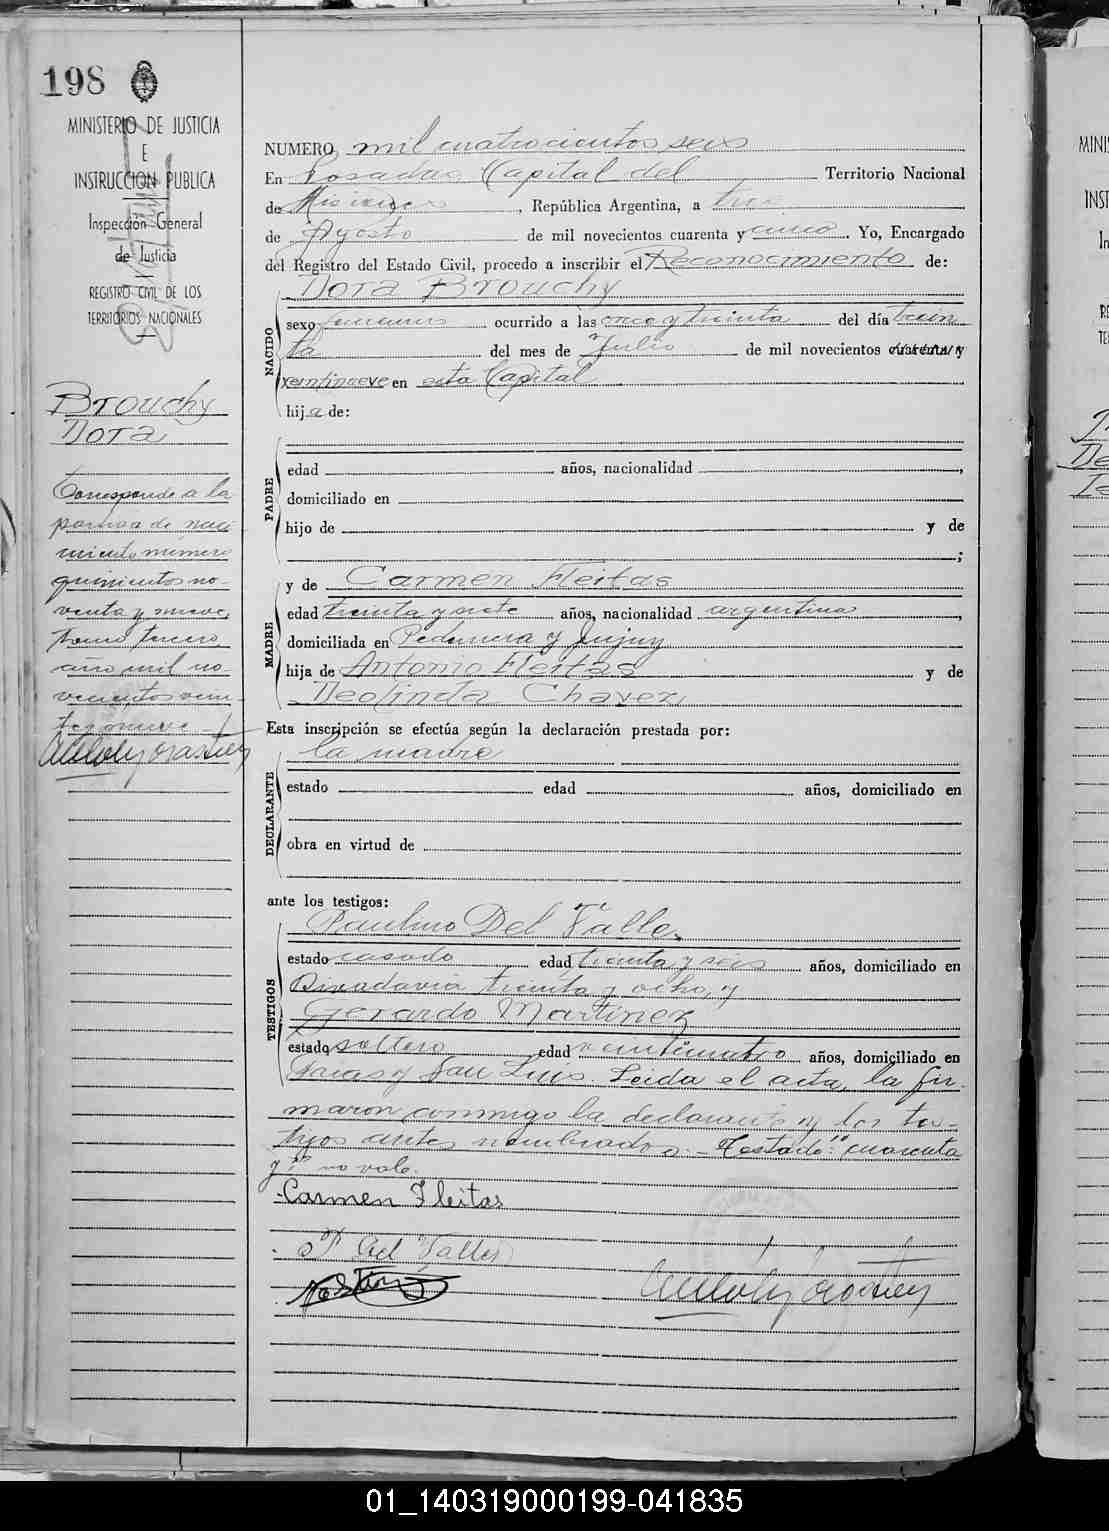 198
MINISTERIO DE JUSTICIA
E
INSTRUCCION PUBLICA
Inspección General
de Justicia
REGISTRO CIVIL DE LOS
TERRITORIOS NACIONALES
Brouchy
Dora
Corresponde a la
partida de naci-
miento número
quinientos no-
venta y nueve,
tomo tercero,
año mil no-
vecientos vein-
tinueve
NUMERO mil cuatrocientos seis
En Posadas, Capital del Territorio Nacional
de Misiones, República Argentina, a tres
de Agosto de mil novecientos cuarenta y cinco. Yo, Encargado
del Registro del Estado Civil, procedo a inscribir el Reconocimiento de:
Dora Brouchy
NACIDO
sexo femenino ocurrido a las once y treinta del día trein
ta del mes de Julio de mil novecientos cuarenta y
veintinueve en esta Capital
hija de:
PADRE
edad años, nacionalidad ,
domiciliado en
hijo de y de
;
MADRE
y de Carmen Fleitas
edad treinta y siete años, nacionalidad argentina
domiciliada en Pedernera y Jujuy
hija de Antonio Fleitas y de
Deolinda Chavez
Esta inscripción se efectúa según la declaración prestada por:
DECLARANTE
la madre
estado edad años, domiciliado en
obra en virtud de
ante los testigos:
TESTIGOS
Paulino Del Valle
estado casado edad treinta y seis años, domiciliado en
Rivadavia treinta y ocho, y
Gerardo Martinez
estado soltero edad veinticuatro años, domiciliado en
y San Luis. Leida el acta, la fir-
maron conmigo la declarante y los tes-
tigos antes nombrados.- Testado: "cuarenta
y" no vale.
Carmen Fleitas
P. del Valle
MINI
INST
In
RE
TE
01_140319000199-041835